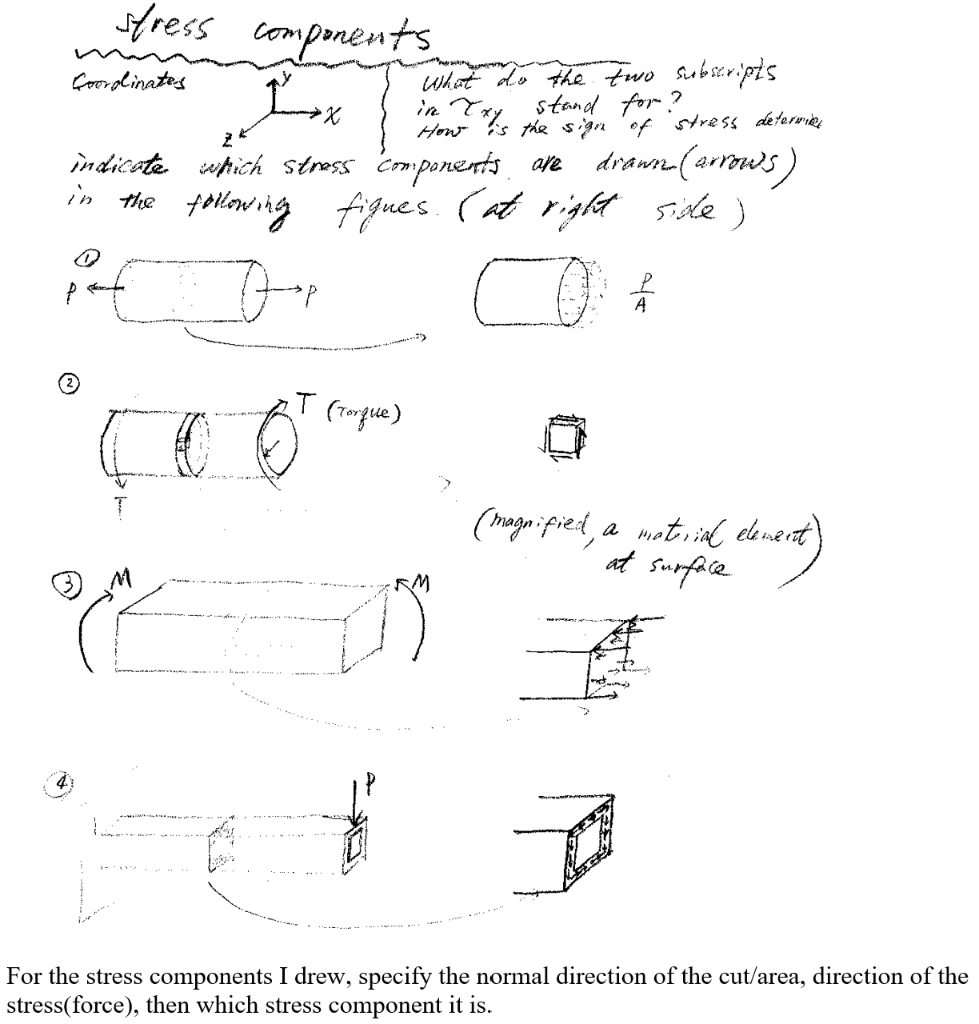 stress components
Coordinates
y
x
z
What do the two subscripts
in τxy stand for?
How is the sign of stress determines
indicate which stress components are drawn (arrows)
in the following figues. (at right side)
①
P
P
P
A
②
T (Torque)
T
(magnified, a material element)
at surface
③
M
M
④
P
For the stress components I drew, specify the normal direction of the cut/area, direction of the
stress(force), then which stress component it is.